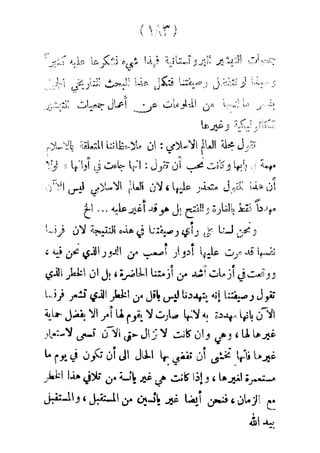 (١٨٣)
جمعيات التبشير البروتستانية فهذا شيء نشكرها عليه كثيراً
وحبذا لو تتفضل رصيفتنا فتكمل هذا البحث التاريخي الجليل
بنشر من المعلومات عن أعمال جمعيات التبشير
الكاثوليكية وغيرها
تقول مجلة العالم الاسلامي : ان ملاحظاتنا المتعلقة بالاسلام
مهمة بابها وكانت تحب أن تقول : انها جاءت في أوانها « لولا
أن هذا القول متعذر عليها، لان العالم الاسلامي ليس الآن
مهدداً فقط بالغارة والفتح بل هو قد أغير عليه ... الخ
ونحن لسنا على رأي رصيفتنا في هذه النتيجة لان فرنسا
نفسها قد مرت عليها أدوار أصعب من الدور الذي نحن فيه ،
ووقعت في أزمات أشد من أزمتنا الحاضرة ، بل ان الخطر الذي
تقول رصيفتنا إنه يتهددنا ليس بأقل من الخطر الذي تشعر فرنسا
الآن بانها مهددة به لانها صارت لا يقوم لها أمر الا بفضل حماية
غيرها لها ، وهي وان كانت لا تزال حتى الآن تسعى لاستعمار
غيرها فانها تخشى أن تفضي بها الحال الى أن تكون في يوم ما
مستعمرة لغيرها ، وإذا كانت هي غير يائسة من تلافي هذا الخطر
مع الزمان ، فنحن أيضا غير يائسين من المستقبل ، والمستقبل
بيد الله